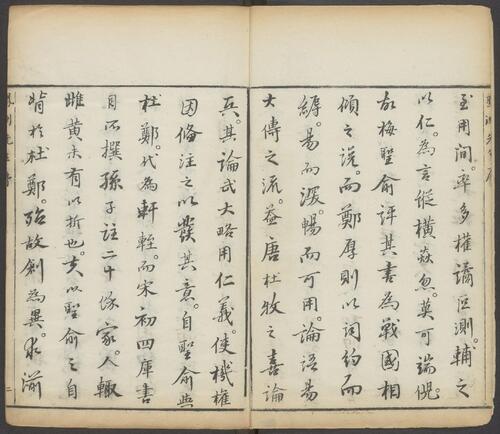 至用間。率多權譎叵測。輔之
以仁。為言縱橫焱忽。莫可端倪。
故梅聖俞評其書為戰國相
傾之說。而鄭厚則以詞約而
縟。易而深。暢而可用。論語易
大傳之流。蓋唐杜牧之喜論
兵。其論武大略用仁義。使機權
因俻注之以發其意。自聖俞與
杜鄭。代為軒輊。而宋初四庫書
目所撰孫子註二十餘家。人輙
雌黃未有以折也。夫以聖俞之自
於杜鄭。殆故創為異。求湔
二